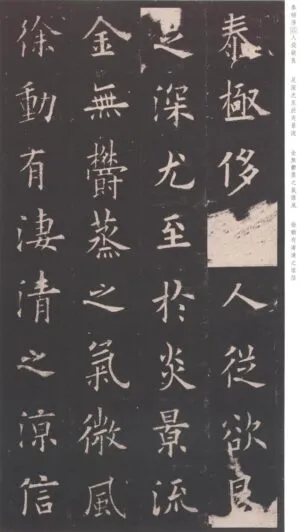 泰極侈人從欲良
足深尤至於炎景流
金無鬱蒸之氣微風
徐動有淒清之涼信